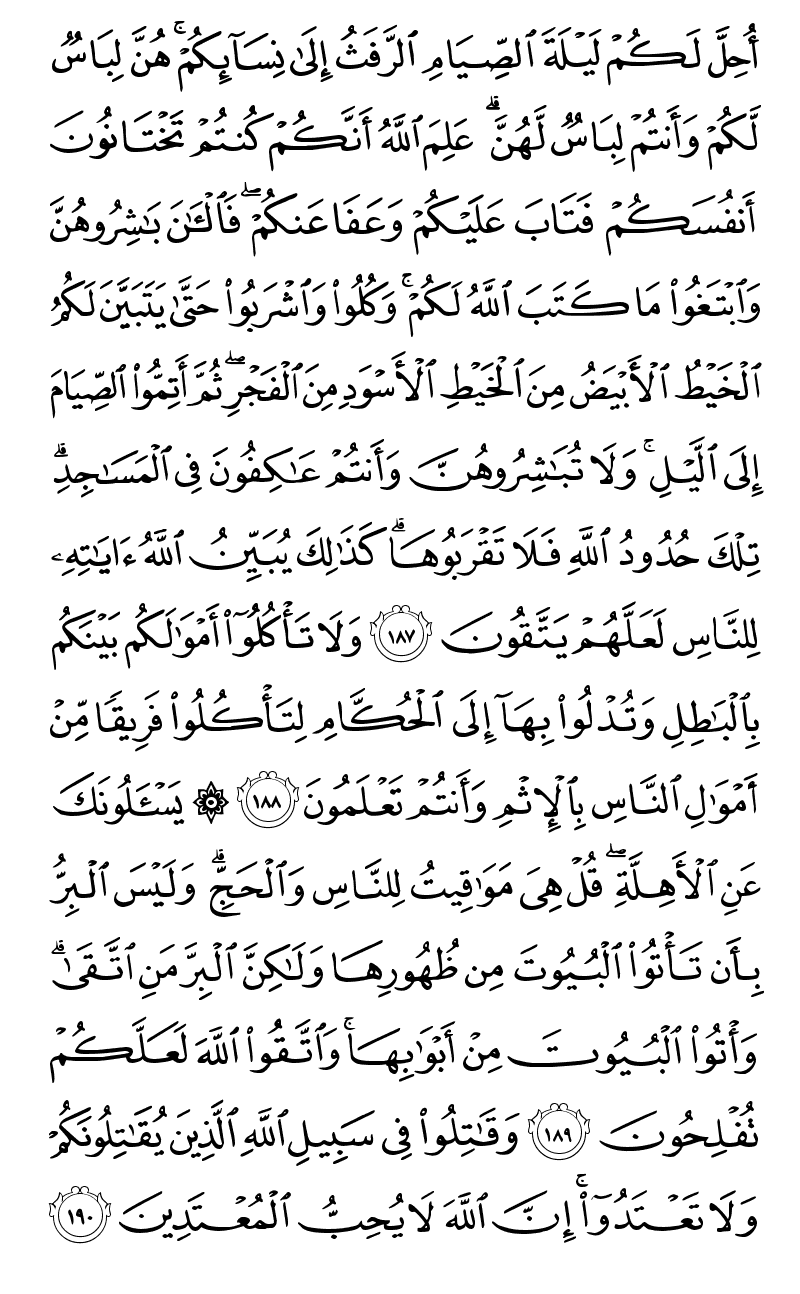 أُحِلَّ لَكُمْ لَيْلَةَ ٱلصِّيَامِ ٱلرَّفَثُ إِلَىٰ نِسَآئِكُمْ ۚ هُنَّ لِبَاسٌ
لَّكُمْ وَأَنتُمْ لِبَاسٌ لَّهُنَّ ۗ عَلِمَ ٱللَّهُ أَنَّكُمْ كُنتُمْ تَخْتَانُونَ
أَنفُسَكُمْ فَتَابَ عَلَيْكُمْ وَعَفَا عَنكُمْ ۖ فَٱلْـَٰٔنَ بَٰشِرُوهُنَّ
وَٱبْتَغُوا۟ مَا كَتَبَ ٱللَّهُ لَكُمْ ۚ وَكُلُوا۟ وَٱشْرَبُوا۟ حَتَّىٰ يَتَبَيَّنَ لَكُمُ
ٱلْخَيْطُ ٱلْأَبْيَضُ مِنَ ٱلْخَيْطِ ٱلْأَسْوَدِ مِنَ ٱلْفَجْرِ ۖ ثُمَّ أَتِمُّوا۟ ٱلصِّيَامَ
إِلَى ٱلَّيْلِ ۚ وَلَا تُبَٰشِرُوهُنَّ وَأَنتُمْ عَٰكِفُونَ فِى ٱلْمَسَٰجِدِ ۗ
تِلْكَ حُدُودُ ٱللَّهِ فَلَا تَقْرَبُوهَا ۗ كَذَٰلِكَ يُبَيِّنُ ٱللَّهُ ءَايَٰتِهِۦ
لِلنَّاسِ لَعَلَّهُمْ يَتَّقُونَ ١٨٧ وَلَا تَأْكُلُوٓا۟ أَمْوَٰلَكُم بَيْنَكُم
بِٱلْبَٰطِلِ وَتُدْلُوا۟ بِهَآ إِلَى ٱلْحُكَّامِ لِتَأْكُلُوا۟ فَرِيقًا مِّنْ
أَمْوَٰلِ ٱلنَّاسِ بِٱلْإِثْمِ وَأَنتُمْ تَعْلَمُونَ ١٨٨ ۞ يَسْـَٔلُونَكَ
عَنِ ٱلْأَهِلَّةِ ۖ قُلْ هِىَ مَوَٰقِيتُ لِلنَّاسِ وَٱلْحَجِّ ۗ وَلَيْسَ ٱلْبِرُّ
بِأَن تَأْتُوا۟ ٱلْبُيُوتَ مِن ظُهُورِهَا وَلَٰكِنَّ ٱلْبِرَّ مَنِ ٱتَّقَىٰ ۗ
وَأْتُوا۟ ٱلْبُيُوتَ مِنْ أَبْوَٰبِهَا ۚ وَٱتَّقُوا۟ ٱللَّهَ لَعَلَّكُمْ
تُفْلِحُونَ ١٨٩ وَقَٰتِلُوا۟ فِى سَبِيلِ ٱللَّهِ ٱلَّذِينَ يُقَٰتِلُونَكُمْ
وَلَا تَعْتَدُوٓا۟ ۚ إِنَّ ٱللَّهَ لَا يُحِبُّ ٱلْمُعْتَدِينَ ١٩٠